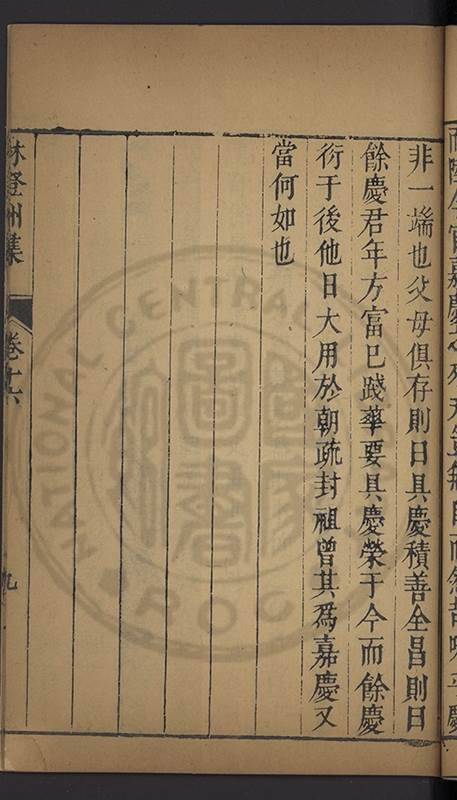 非一端也父母俱存則曰具慶積善全昌則曰
餘慶君年方富已踐華要具慶榮于今而餘慶
衍于後他日大用於朝疏封祖曾其爲嘉慶又
當何如也
林登州集
卷十六
九
NATIONAL CENTRAL